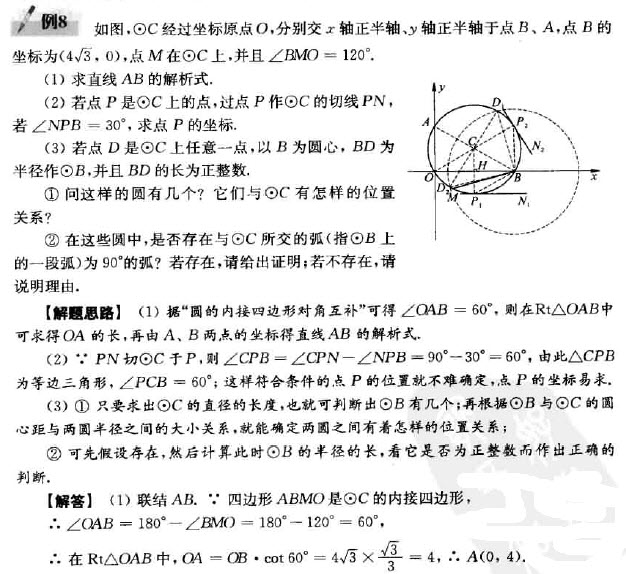 例8 如图,⊙C经过坐标原点O,分别交x轴正半轴、y轴正半轴于点B、A,点B的
坐标为(4√3,0),点M在⊙C上,并且∠BMO=120°.
(1) 求直线AB的解析式.
(2) 若点P是⊙C上的点,过点P作⊙C的切线PN,
若∠NPB=30°,求点P的坐标.
(3) 若点D是⊙C上任意一点,以B为圆心,BD为
半径作⊙B,并且BD的长为正整数.
① 问这样的圆有几个?它们与⊙C有怎样的位置
关系?
② 在这些圆中,是否存在与⊙C所交的弧(指⊙B上
的一段弧)为90°的弧?若存在,请给出证明;若不存在,请
说明理由.
y
D
A
P₂
C
N₂
H
O
B
x
D
M
P₁
N₁
【解题思路】 (1) 据“圆的内接四边形对角互补”可得∠OAB=60°,则在Rt△OAB中
可求得OA的长,再由A、B两点的坐标得直线AB的解析式.
(2) ∵ PN切⊙C于P,则∠CPB=∠CPN-∠NPB=90°-30°=60°,由此△CPB
为等边三角形,∠PCB=60°;这样符合条件的点P的位置就不难确定,点P的坐标易求.
(3) ① 只要求出⊙C的直径的长度,也就可判断出⊙B有几个;再根据⊙B与⊙C的圆
心距与两圆半径之间的大小关系,就能确定两圆之间有着怎样的位置关系;
② 可先假设存在,然后计算此时⊙B的半径的长,看它是否为正整数而作出正确的
判断.
【解答】 (1) 联结AB. ∵ 四边形ABMO是⊙C的内接四边形,
∴ ∠OAB=180°-∠BMO=180°-120°=60°,
∴ 在Rt△OAB中,OA=OB·cot 60°=4√3×√3/3=4,∴ A(0,4).